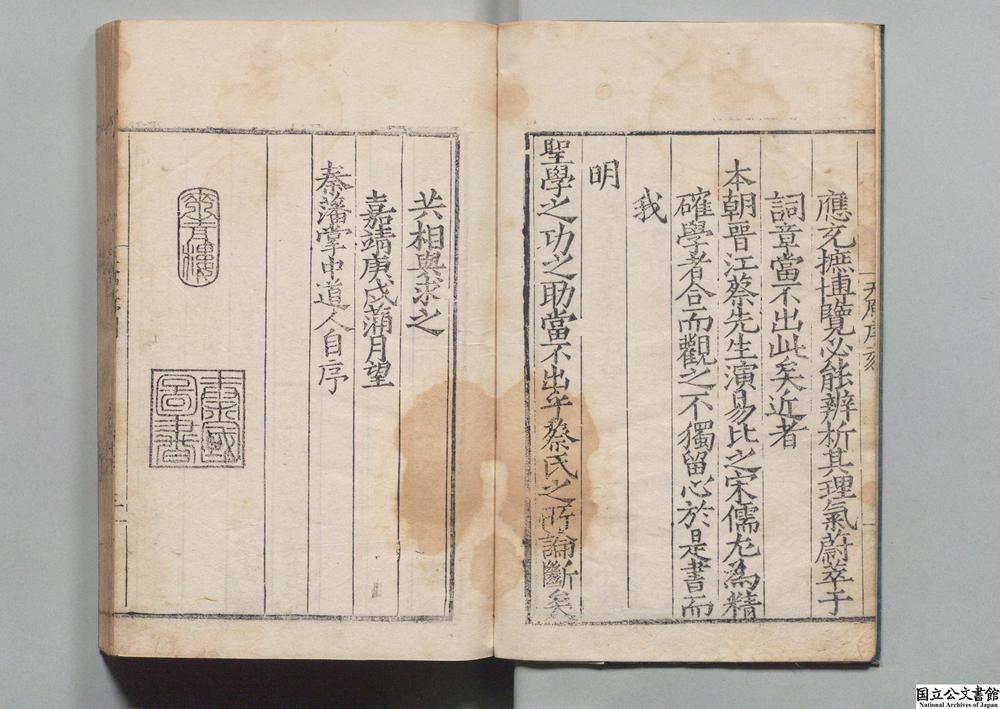 應充摭博覽必能辨析其理氣蔚萃于
詞章當不出此矣近者
本朝晋江蔡先生演易比之宋儒尤為精
確學者合而觀之不獨留心於是書而
我
明
聖學之功之助當不出乎蔡氏之所論斷矣
共相與求之
嘉靖庚戌蒲月望
秦藩掌中道人自序
東國
圖書
国立公文書館
National Archives of Japan